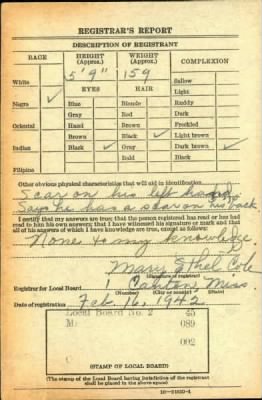 REGISTRAR'S REPORT
DESCRIPTION OF REGISTRANT
RACE HEIGHT (Approx.) WEIGHT (Approx.) COMPLEXION
5' 9" 159
White Sallow
EYES HAIR Light
Negro ✓ Blue Blonde Ruddy
Gray Red Dark
Oriental Hazel Brown Freckled
Brown Black ✓ Light brown
Indian Black ✓ Gray Dark brown ✓
Bald Black
Filipino
Other obvious physical characteristics that will aid in identification
Scar on his left hand
Says he has a scar on his back
I certify that my answers are true; that the person registered has read or has had
read to him his own answers; that I have witnessed his signature or mark and that
all of his answers of which I have knowledge are true, except as follows:
None to my knowledge
Mary Ethel Cole
(Signature of registrar)
Registrar for Local Board 1 Canton, Miss.
(Number) (City or county)
Date of registration Feb. 16, 1942
Local Board No. 2 45
089
002
(STAMP OF LOCAL BOARD)
(The stamp of the Local Board having jurisdiction of the registrant
shall be placed in the above space.)